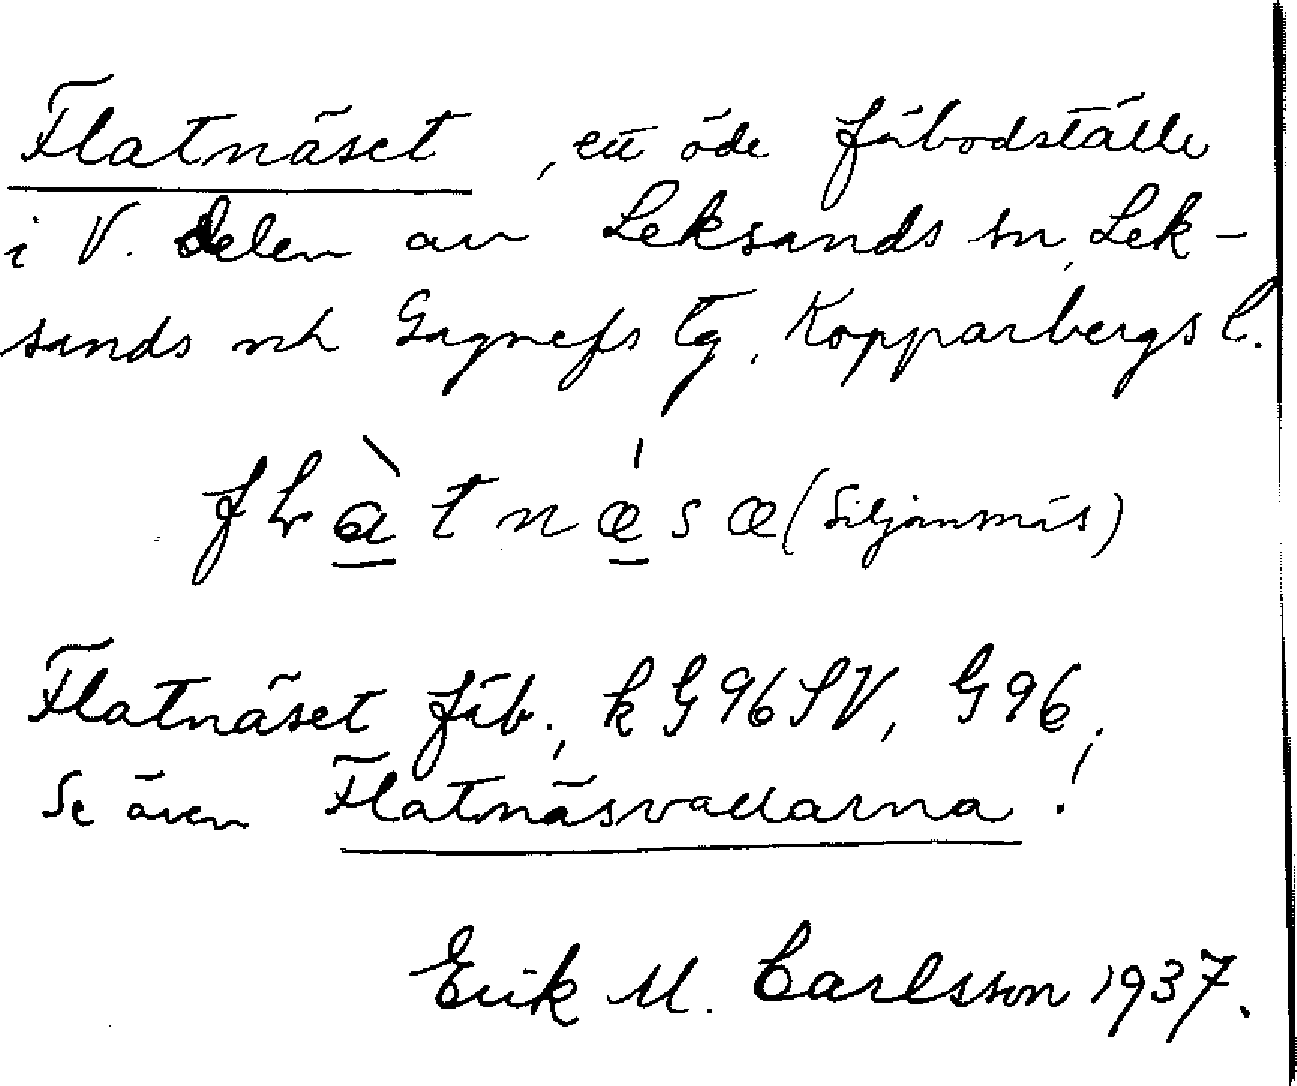 Flatnäset, ett öde fäbodställe
i V. delen av Leksands sn, Lek-
sands och Gagnefs tg, Kopparbergs l.
(Siljansnäs)
Flatnäset fäb., k G 96 SV, G 96.
Se även Flatnäsvallarna!
Erik M. Carlsson 1937.